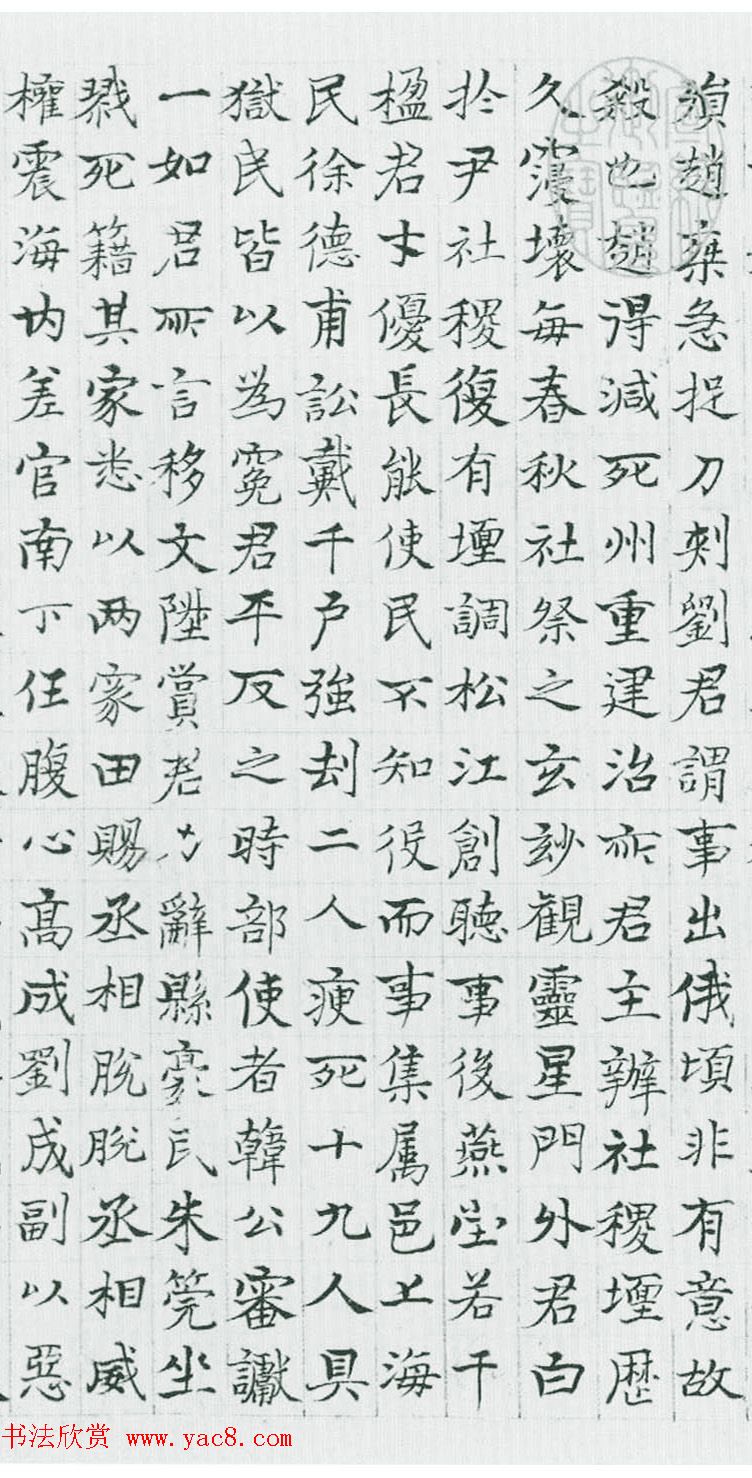 損趙棄急捉刀刺劉君謂事出俄頃非有意故
殺也趙得減死州重建治所君主辦社稷壇歴
久寖壞每春秋社祭之玄妙觀靈星門外君白
扵尹社稷復有壇調松江創聽事後燕堂若干
楹君才優長能使民不知役而事集属邑上海
民徐德甫訟戴千户強刦二人瘐死十九人具
獄民皆以為寃君平反之時部使者韓公審讞
一如君所言移文陞賞君力辭縣豪民朱筦坐
戮死籍其家悉以两家田賜丞相脫脫丞相威
權震海内差官南下任腹心高成劉成副以惡
书法欣赏 www.yac8.com